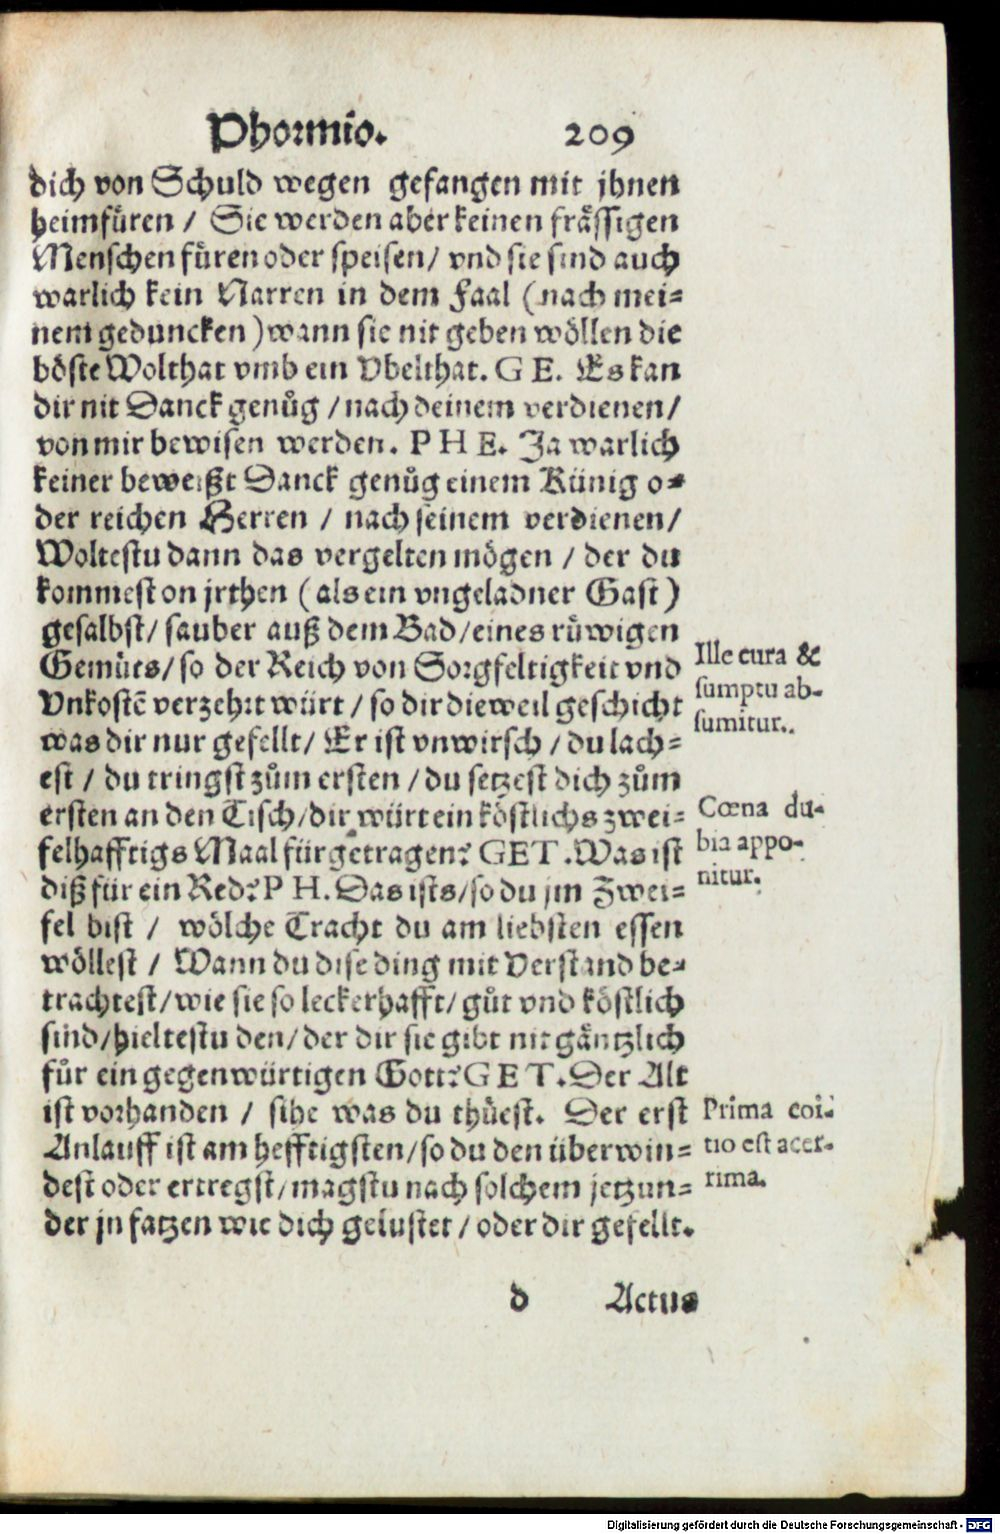 Phormio. 209
dich von Schuld wegen gefangen mit jhnen
heimfuͤren / Sie werden aber keinen fraͤssigen
Menschen fuͤren oder speisen / vnd sie sind auch
warlich kein Narren in dem Faal (nach mei-
nem geduncken) wann sie nit geben woͤllen die
boͤste Wolthat vmb ein Vbelthat. GE. Es kan
dir nit Danck genuͦg / nach deinem verdienen /
von mir bewisen werden. PHE. Ja warlich
keiner beweißt Danck genuͦg einem Künig o-
der reichen Herren / nach seinem verdienen /
Woltestu dann das vergelten moͤgen / der du
kommest on jrthen (als ein vngeladner Gast)
gesalbst / sauber auß dem Bad / eines ruͤwigen
Gemuͤts / so der Reich von Sorgfeltigkeit vnd
Vnkostē verzehrt würt / so dir dieweil geschicht
was dir nur gefellt / Er ist vnwirsch / du lach-
est / du tringst zuͦm ersten / du setzest dich zuͦm
ersten an den Tisch / dir würt ein koͤstlichs zwei-
felhafftigs Maal fürgetragen? GET. Was ist
diß für ein Red? PH. Das ists / so du jm Zwei-
fel bist / woͤlche Tracht du am liebsten essen
woͤllest / Wann du dise ding mit Verstand be-
trachtest / wie sie so leckerhafft / guͦt vnd koͤstlich
sind / hieltestu den / der dir sie gibt nit gaͤntzlich
fuͤr ein gegenwürtigen Gott? GET. Der Alt
ist vorhanden / sihe was du thuͤest. Der erst
Anlauff ist am hefftigsten / so du den überwin-
dest oder ertregst / magstu nach solchem jetzun-
der jn fatzen wie dich gelustet / oder dir gefellt.
Ille cura &
sumptu ab-
sumitur.
Cœna du-
bia appo-
nitur.
Prima coi-
tio est acer-
rima.
d Actus
Digitalisierung gefördert durch die Deutsche Forschungsgemeinschaft - DFG